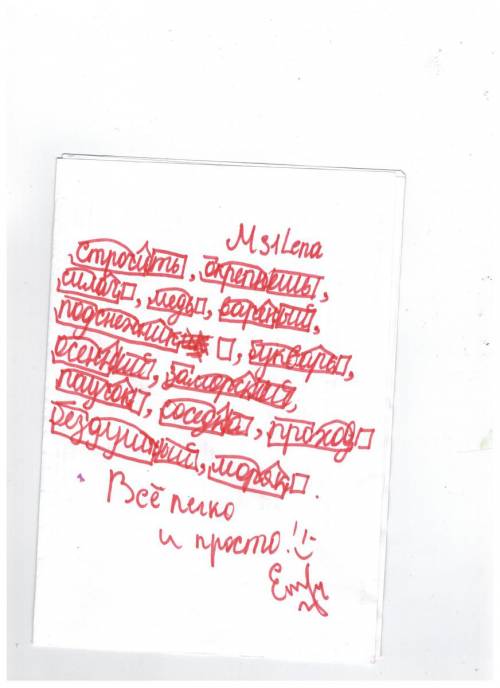 Ms1Lena
строчить, окрепнешь,
силач, медь, варёный,
подснежник, букварь,
осенний, заморский,
паучок, соседка, проход
бездушный, моряк.
Всё легко
и просто! :)